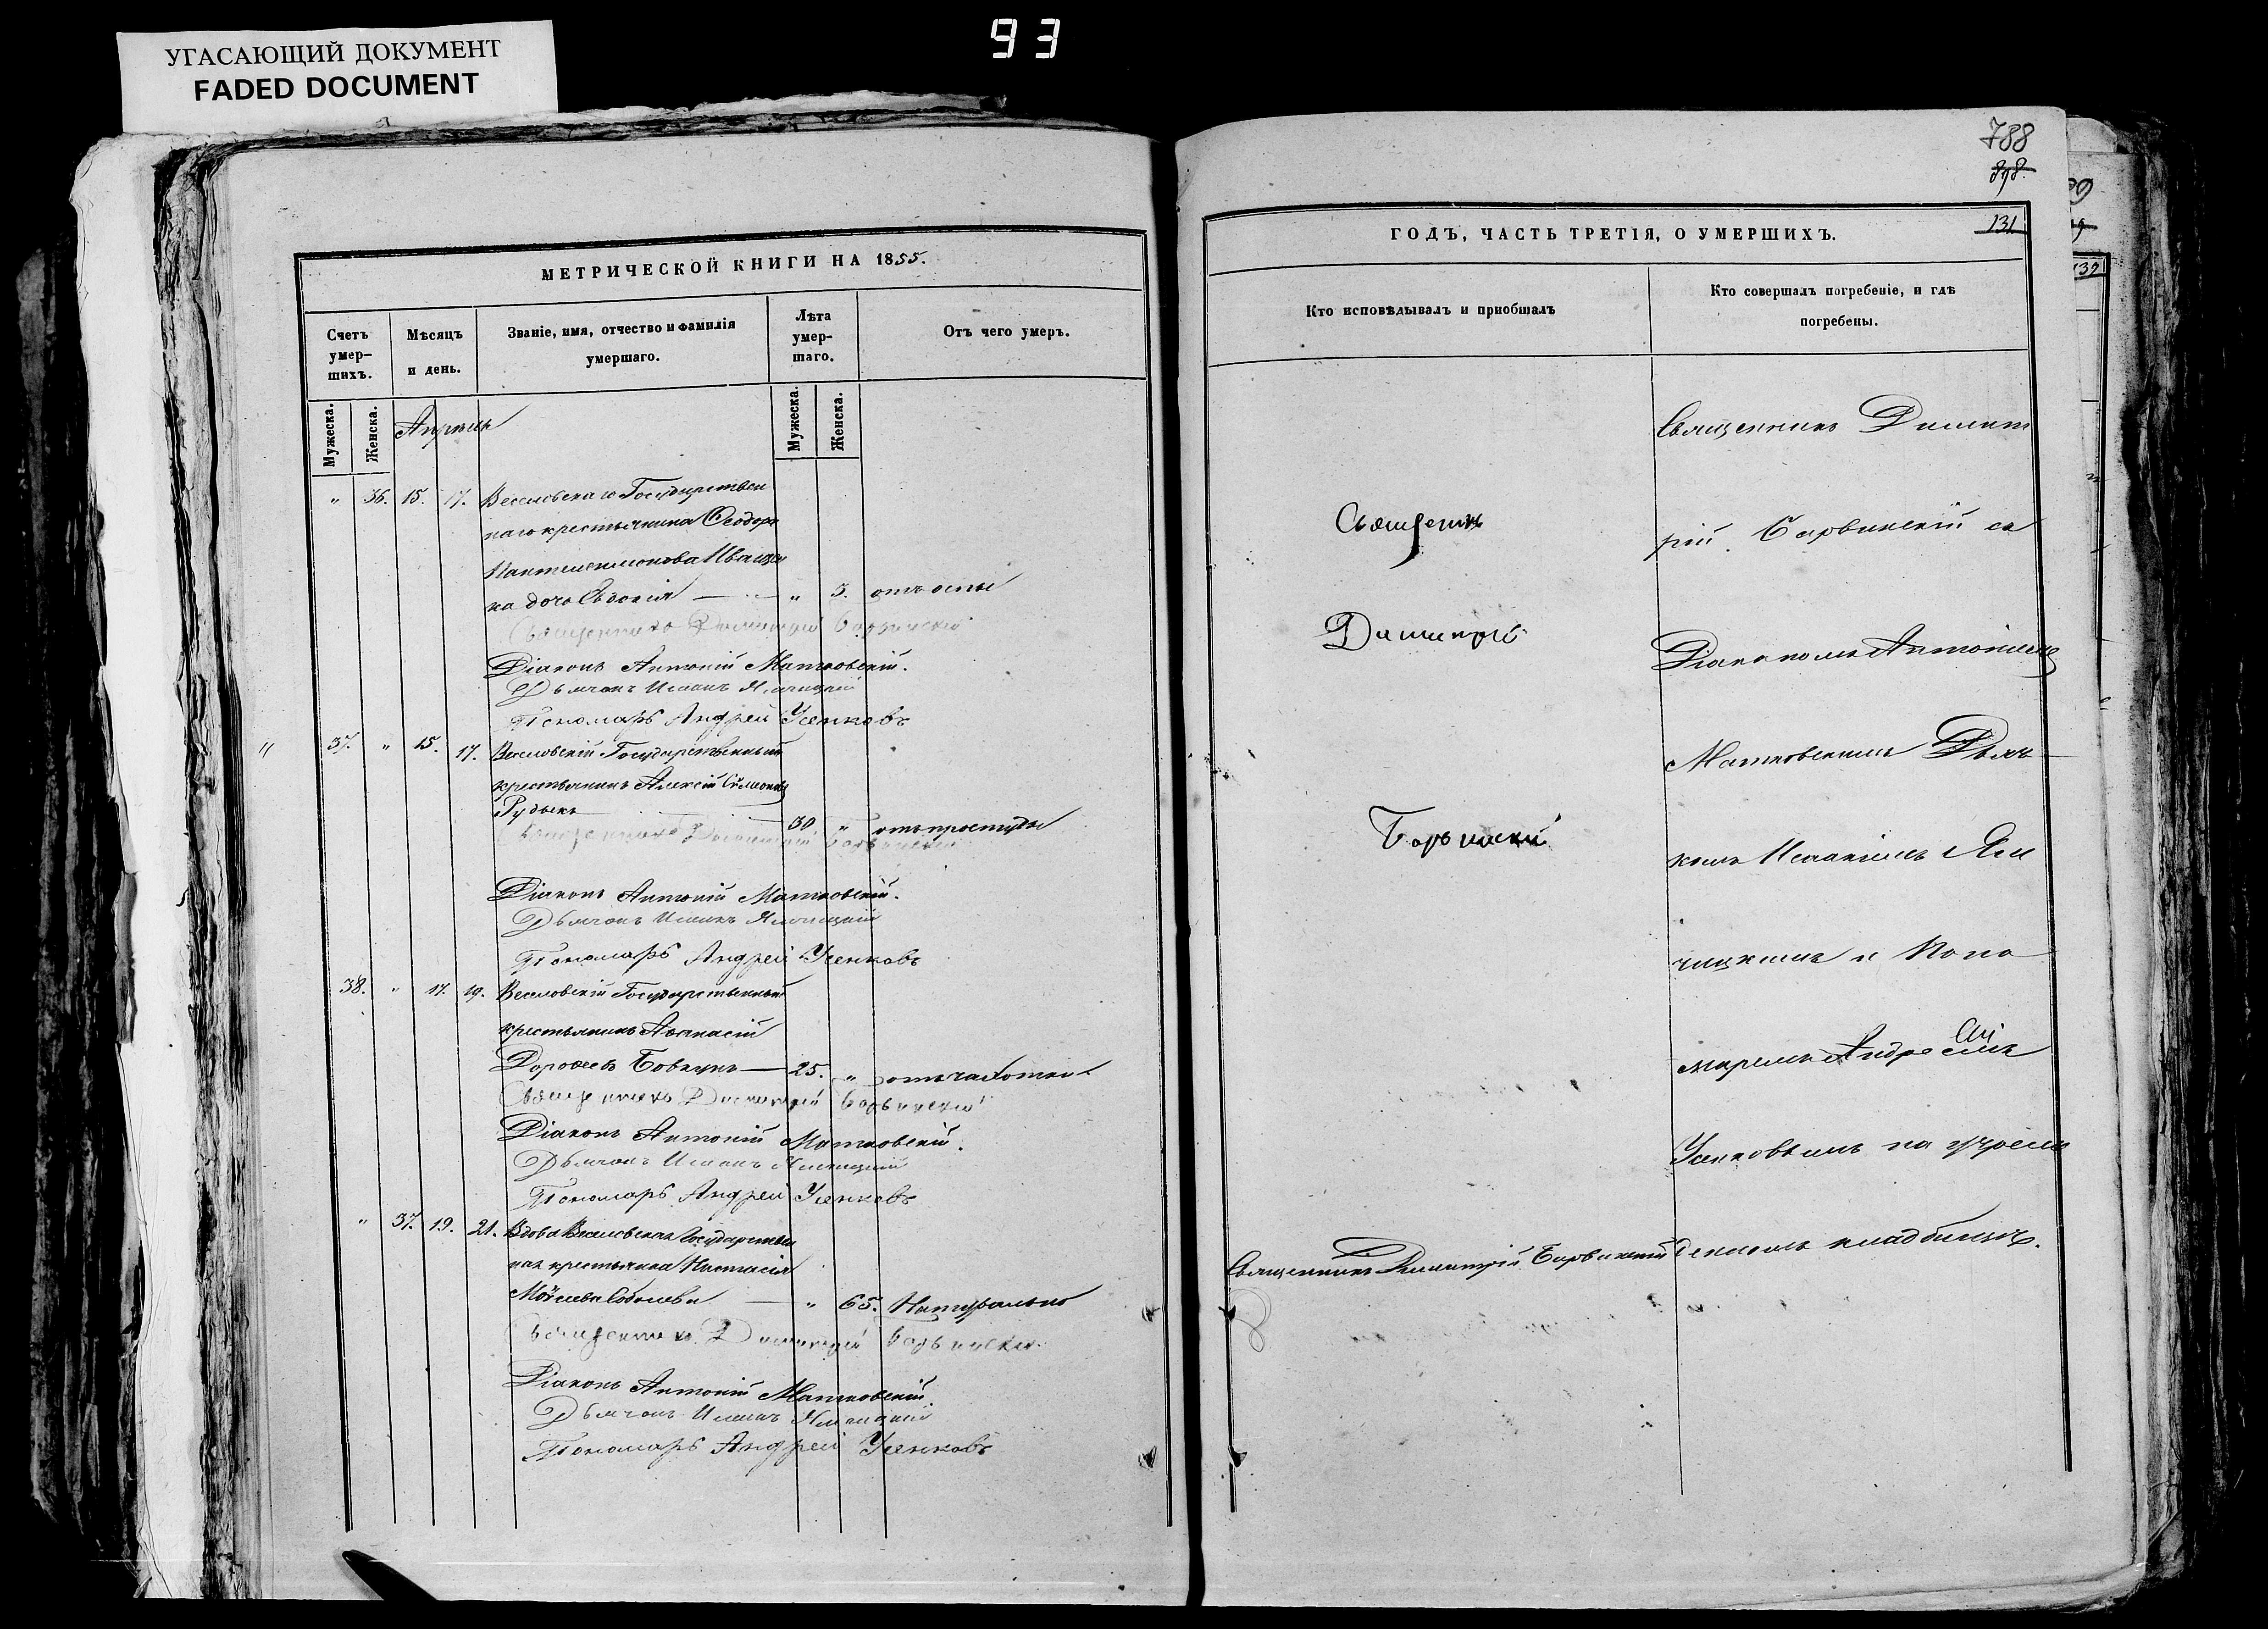 УГАСАЮЩИЙ ДОКУМЕНТ
FADED DOCUMENT
93
МЕТРИЧЕСКОЙ КНИГИ НА 1855.
Счетъ умер-шихъ.
Мѣсяцъ и день.
Званіе, имя, отчество и фамилія умершаго.
Лѣта умер-шаго.
Отъ чего умеръ.
Мужеска.
Женска.
Мужеска.
Женска.
" 36. 15. 17. Веселовскаго Государствен
наго крестьянина Ѳеодора
Пантелеимонова Иващен
ка дочь Евдокія — " 3. отъ оспы
Священникъ Димитрій Барвинскій
Діаконъ Антоній Матковскій.
Дьячокъ Исаакъ
Пономарь Андрей Усенковъ
" 37. " 15. 17. Веселовскій Государственный
крестьянинъ Алексій Сѵмеоновъ
Рудыкъ — 30 " отъ простуды
Священникъ Димитрій Барвинскій
Діаконъ Антоній Матковскій.
Дьячокъ Исаакъ
Пономарь Андрей Усенковъ
38. " 17. 19. Веселовскій Государственный
крестьянинъ Аѳанасій
Дороѳеевъ Бовкунъ — 25. " отъ чахотки
Священникъ Димитрій Барвинскій
Діаконъ Антоній Матковскій.
Дьячокъ Исаакъ
Пономарь Андрей Усенковъ
" 37. 19. 21. Вдова Веселовская Государствен
ная крестьянка Настасія
Моѵсеева — " 65. Натурально
Священникъ Димитрій Барвинскій
Діаконъ Антоній Матковскій
Дьячокъ Исаакъ
Пономарь Андрей Усенковъ
788
898.
131
ГОДЪ, ЧАСТЬ ТРЕТІЯ, О УМЕРШИХЪ.
Кто исповѣдывалъ и пріобщалъ
Кто совершалъ погребеніе, и гдѣ погребены.
Священникъ
Димитрій
Барвинскій
Священникъ Димит
рій Барвинскій съ
Діакономъ Антоніемъ
Матковскимъ Дьяч
комъ Исаакіемъ Ям
чицкимъ и Поно
маремъ Андреемъ
Усенковымъ на учреж
денномъ кладбищѣ.
Священникъ Димитрій Барвинскій